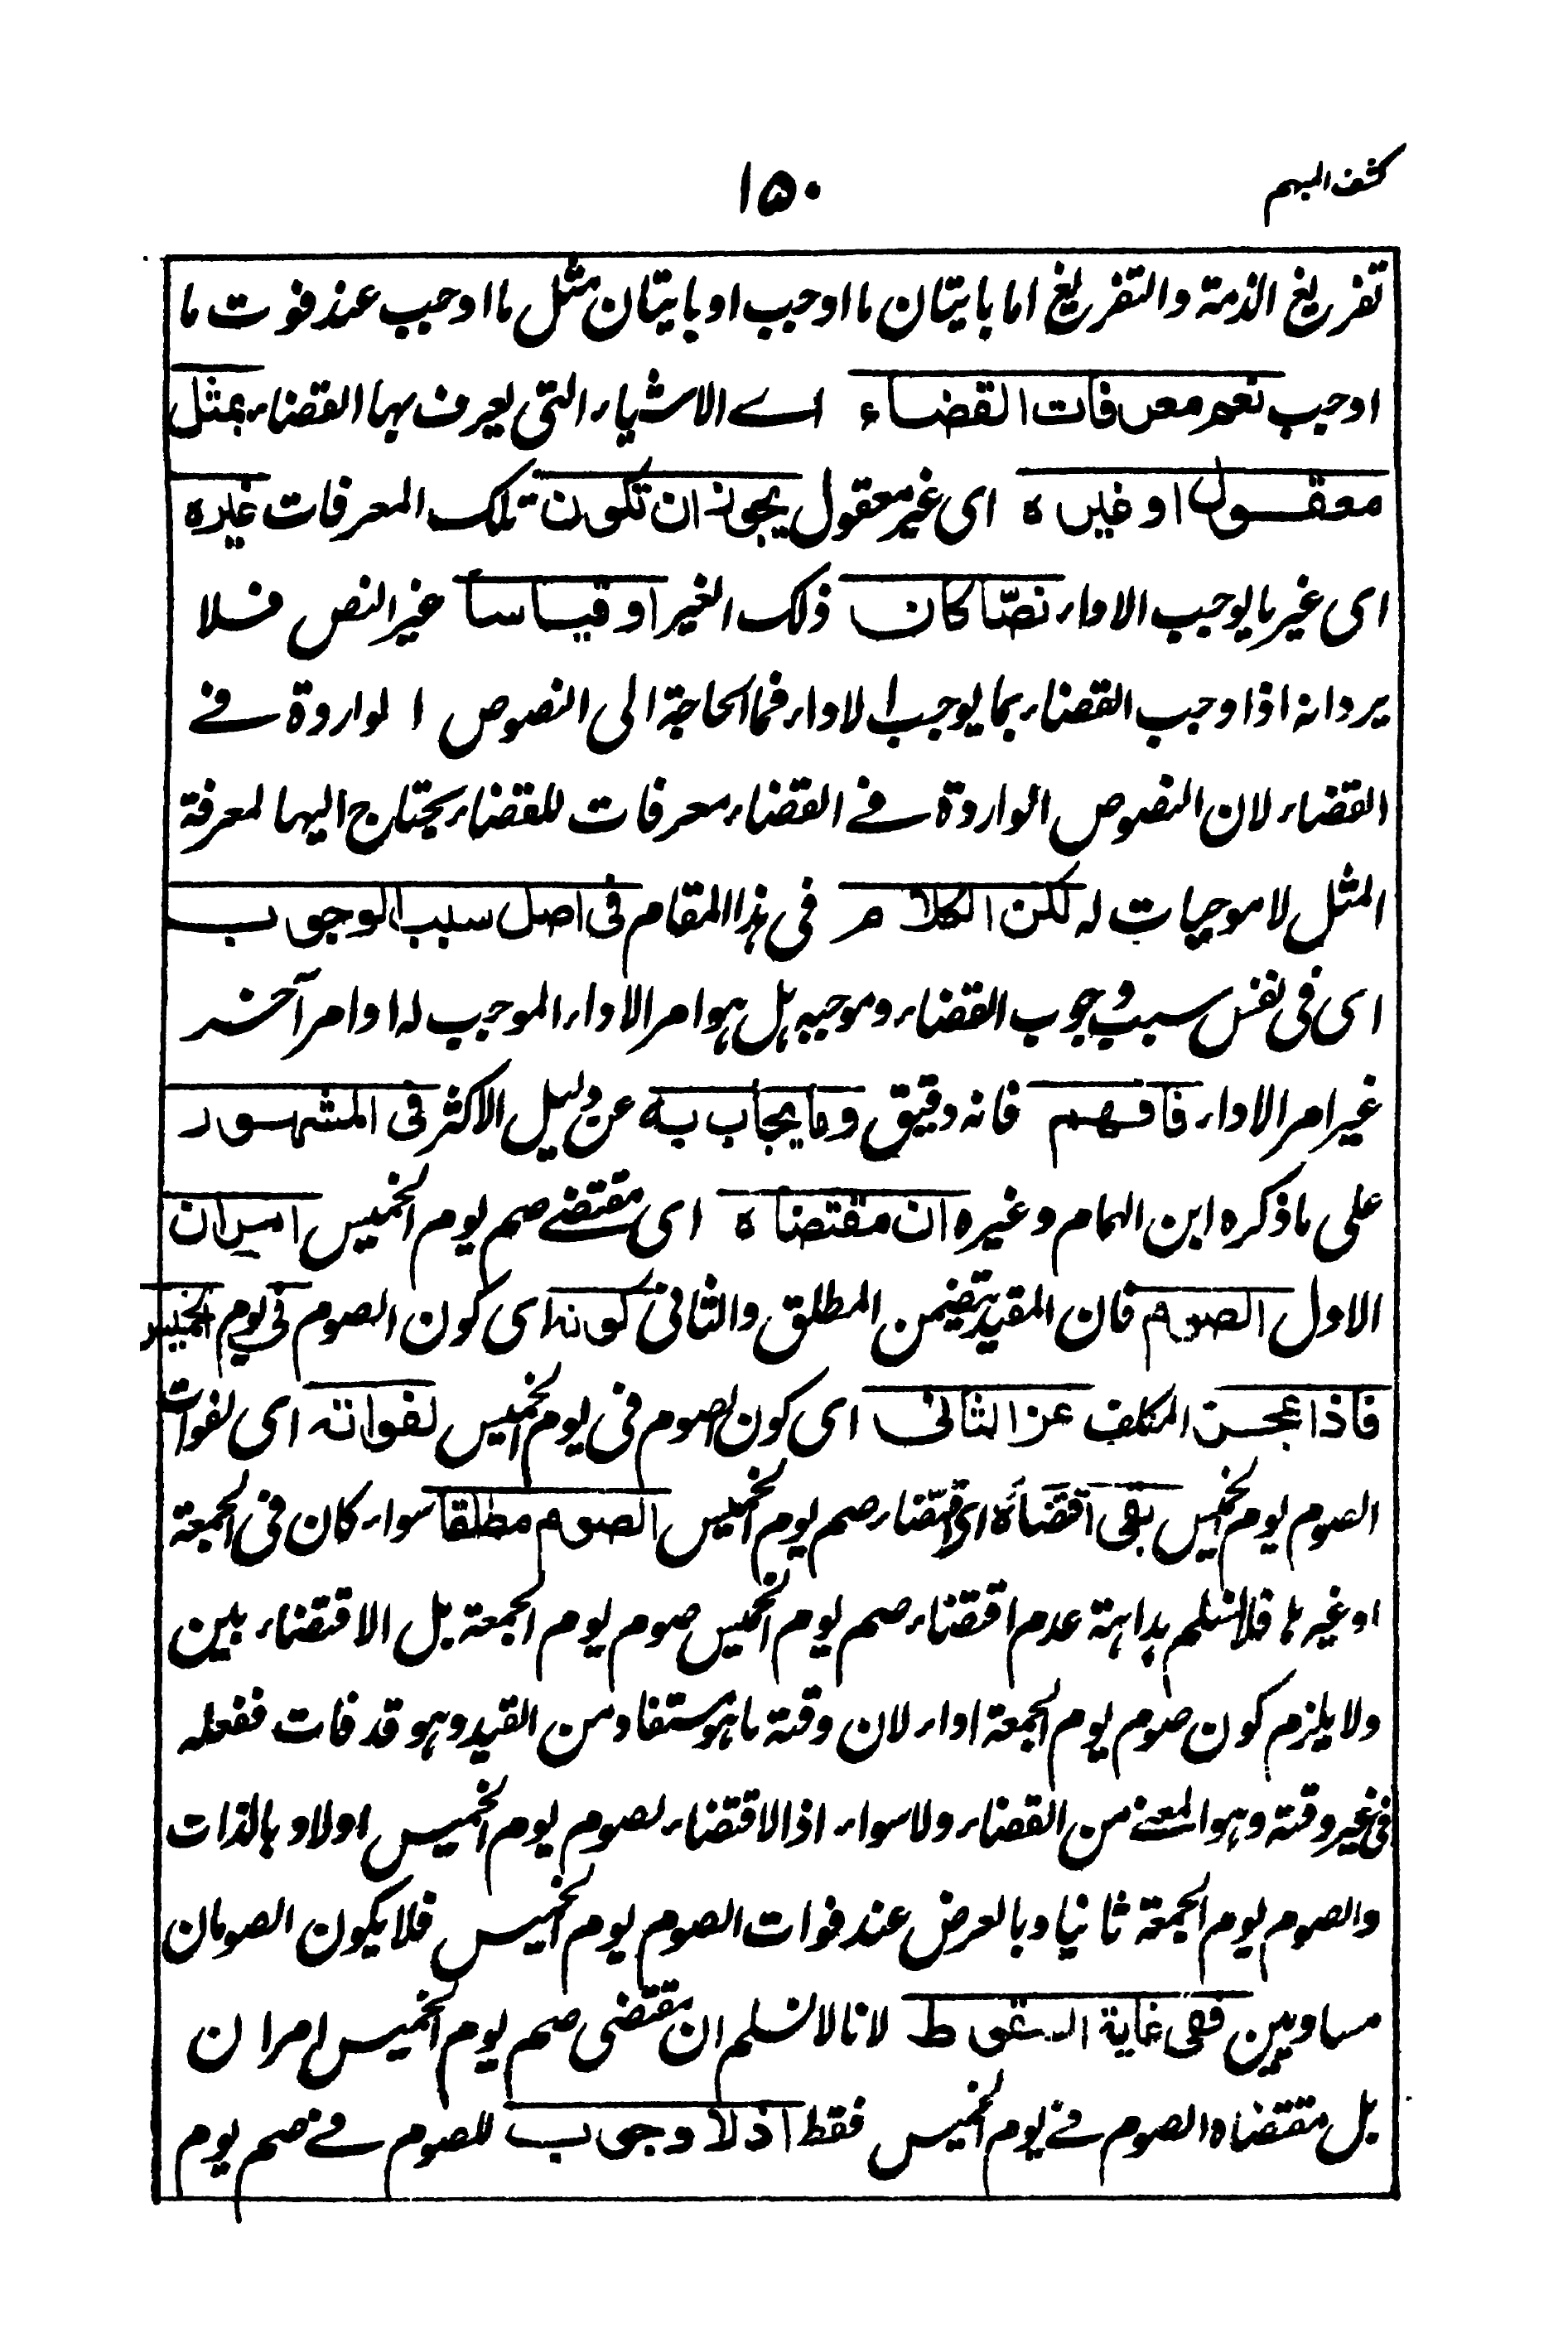 كشف المبهم
۱۵۰
تفريغ الذمة والتفريغ اما باتيان ما اوجب او باتيان مثل ما اوجب عند فوت ما
اوجب نعم معرفات القضاء اے الاشياء التي يعرف بها القضاء بمثل
معقول او غيره اى غير معقول يجوز ان تكون تلك المعرفات غيره
اى غير ما يوجب الاداء نصّا كان ذلك الغير او قياسا غير النص فلا
يرد انه اذا وجب القضاء بما يوجب الاداء فما الحاجة الى النصوص الواردة فے
القضاء لان النصوص الواردة فے القضاء معرفات للقضاء يحتاج اليها لمعرفة
المثل لا موجبات له لكن الكلام في هذا المقام فى اصل سبب الوجوب
اى فى نفس سبب وجوب القضاء وموجبه هل هو امر الاداء الموجب له او امر آخر
غير امر الاداء فافهم فانه دقيق وما يجاب به عن دليل الاكثر فى المشهور
على ما ذكره ابن الهمام وغيره ان مقتضاه اى مقتضے صم يوم الخميس امران
الاول الصوم فان المقيد يتضمن المطلق والثانى كونه اى كون الصوم فى يوم الخميس
فاذا عجز المكلف عن الثانى اى كون الصوم فى يوم الخميس لفواته اى لفوات
الصوم يوم الخميس بقى اقتضاءه اى اقتضاء صم يوم الخميس الصوم مطلقا سواء كان فى الجمعة
او غيرها فلا نسلم بداهة عدم اقتضاء صم يوم الخميس صوم يوم الجمعة بل الاقتضاء بين
ولا يلزم كون صوم يوم الجمعة اداء لان وقته ما هو مستفاد من القيد وهو قد فات ففعله
فى غير وقته وهو المعنے من القضاء ولا سواء اذ الاقتضاء لصوم يوم الخميس اولا وبالذات
والصوم يوم الجمعة ثانيا وبالعرض عند فوات الصوم يوم الخميس فلا يكون الصومان
مساويين ففى غاية السقوط لانا لا نسلم ان مقتضى صم يوم الخميس امران
بل مقتضاه الصوم فے يوم الخميس فقط اذ لا وجوب للصوم فے صم يوم